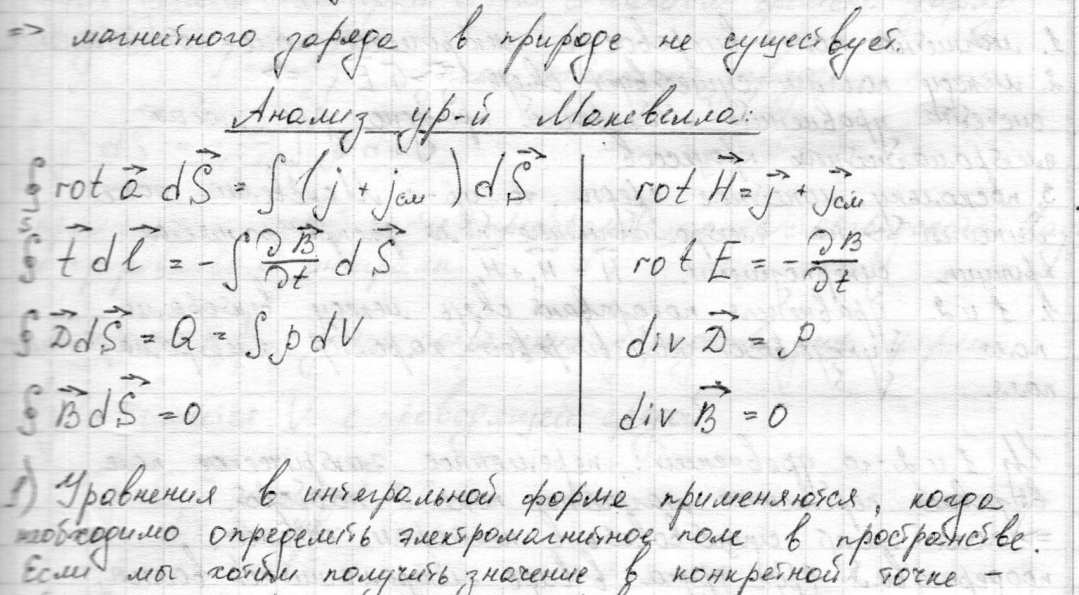 => магнитного заряда в природе не существует.
Анализ ур-й Максвелла:
∮ rot a⃗ dS⃗ = ∫ (j + jсм) dS⃗ | rot H⃗ = j⃗ + j⃗см
∮ t⃗ dl⃗ = - ∫ ∂B⃗/∂t dS⃗ | rot E = - ∂B/∂t
∮ D⃗ dS⃗ = Q = ∫ ρ dV | div D⃗ = ρ
∮ B⃗ dS⃗ = 0 | div B⃗ = 0
1) Уравнения в интегральной форме применяются, когда
необходимо определить электромагнитное поле в пространстве.
Если мы хотим получить значение в конкретной точке -